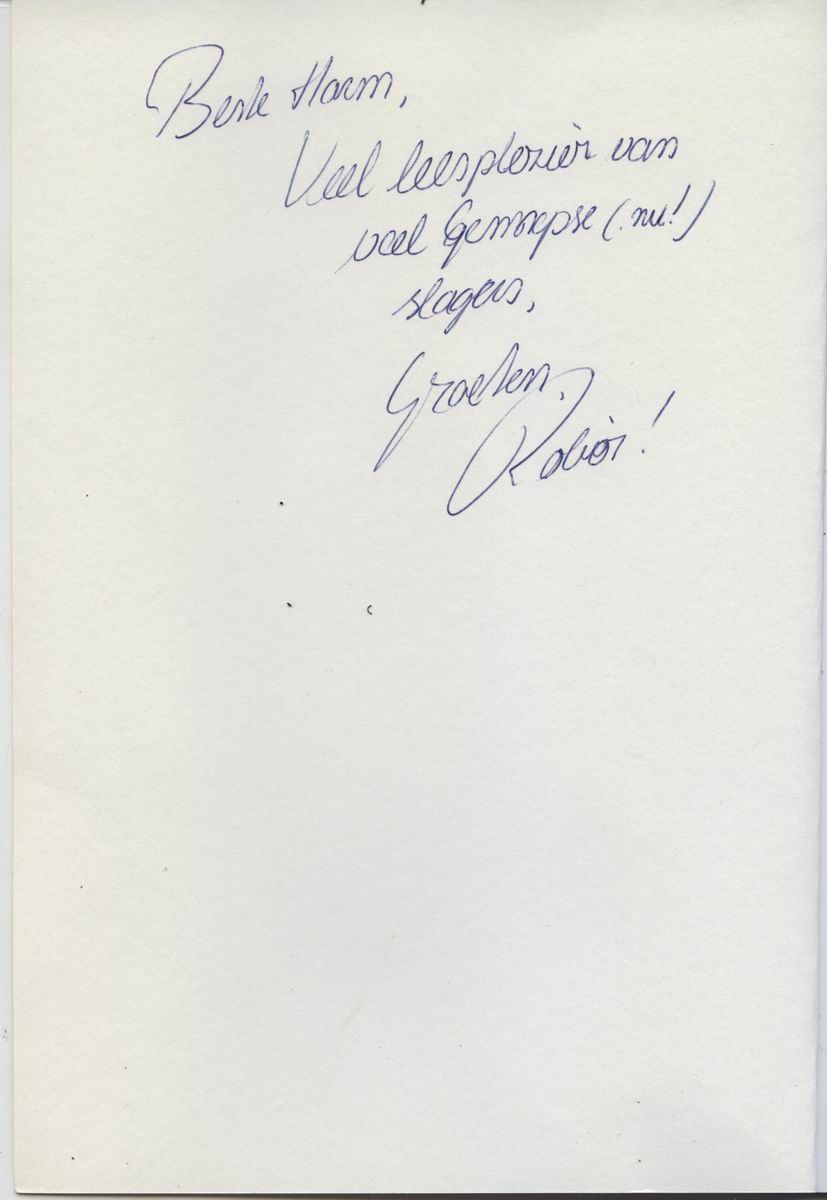 Beste Harm,
Veel leesplezier van
veel Gennepse (nu!)
slagers,
Groeten,